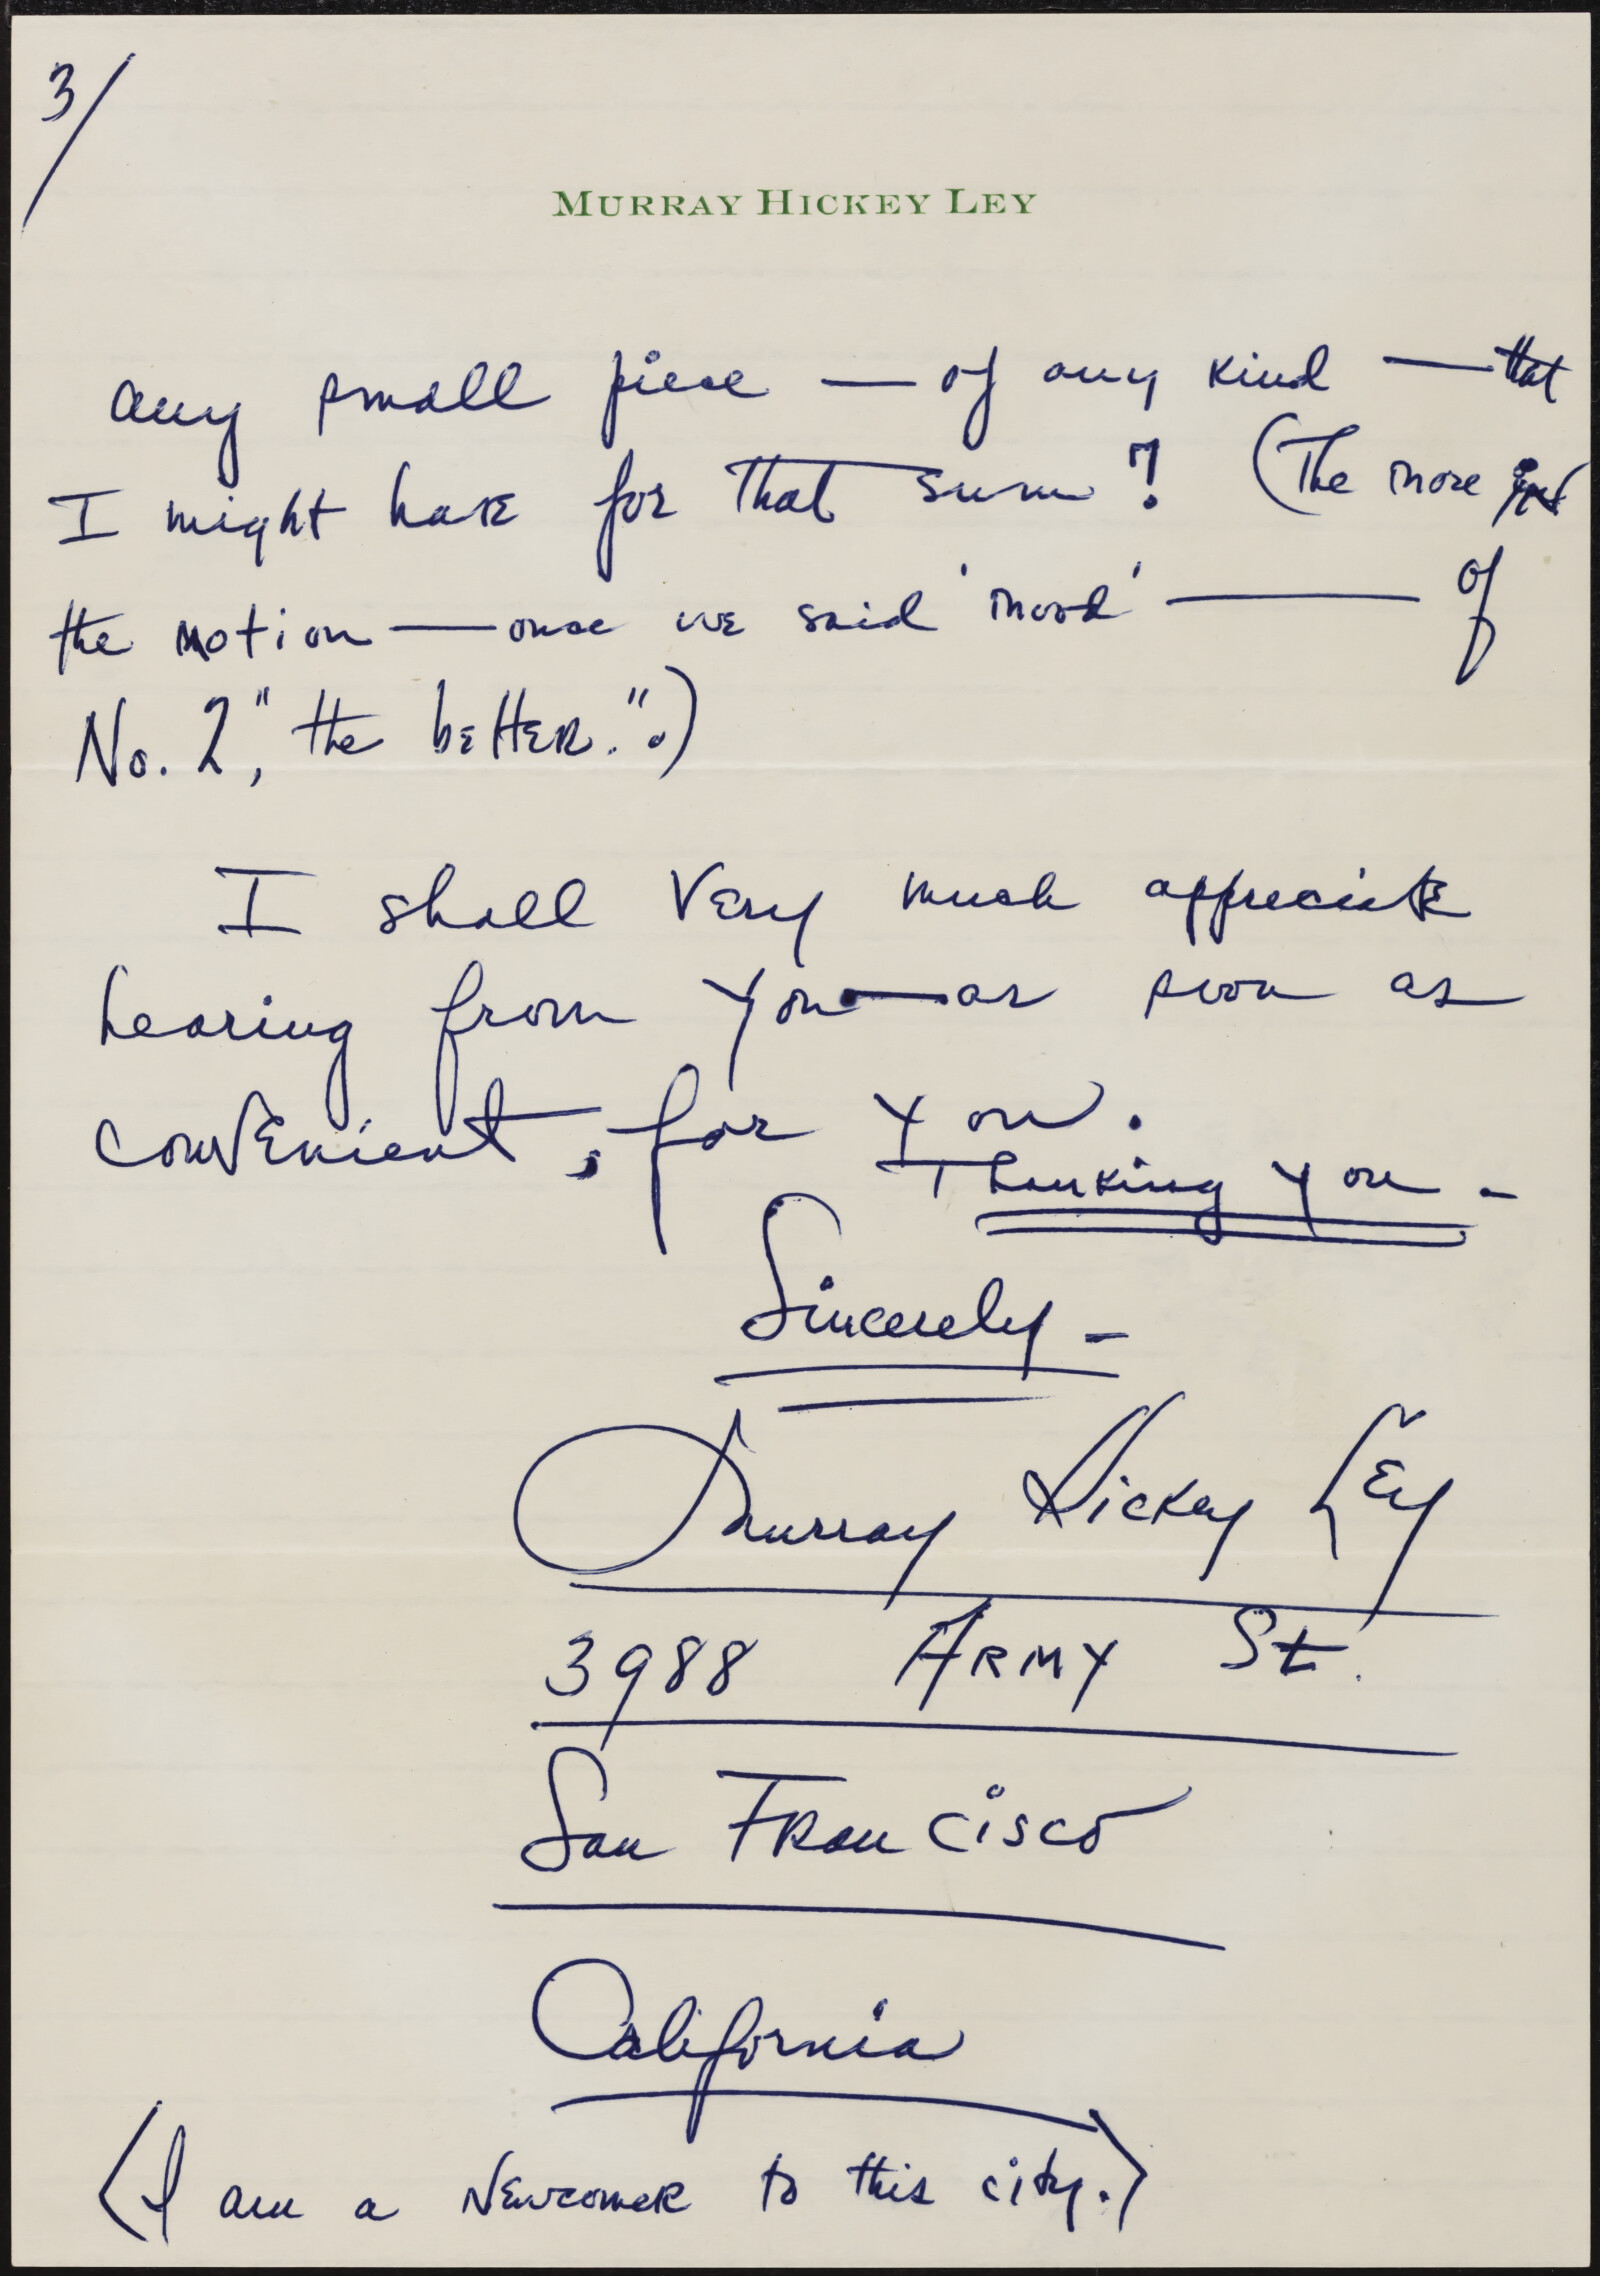 3/
MURRAY HICKEY LEY
any small piece — of any kind — that
I might have for that sum? (The more
the motion — once we said 'mood' — of
No. 2," the better.".)
I shall very much appreciate
hearing from you — as soon as
convenient, for you.
Thanking you -
Sincerely -
Murray Hickey Ley
3988 ARMY St.
San Francisco
California
(I am a Newcomer to this city.)